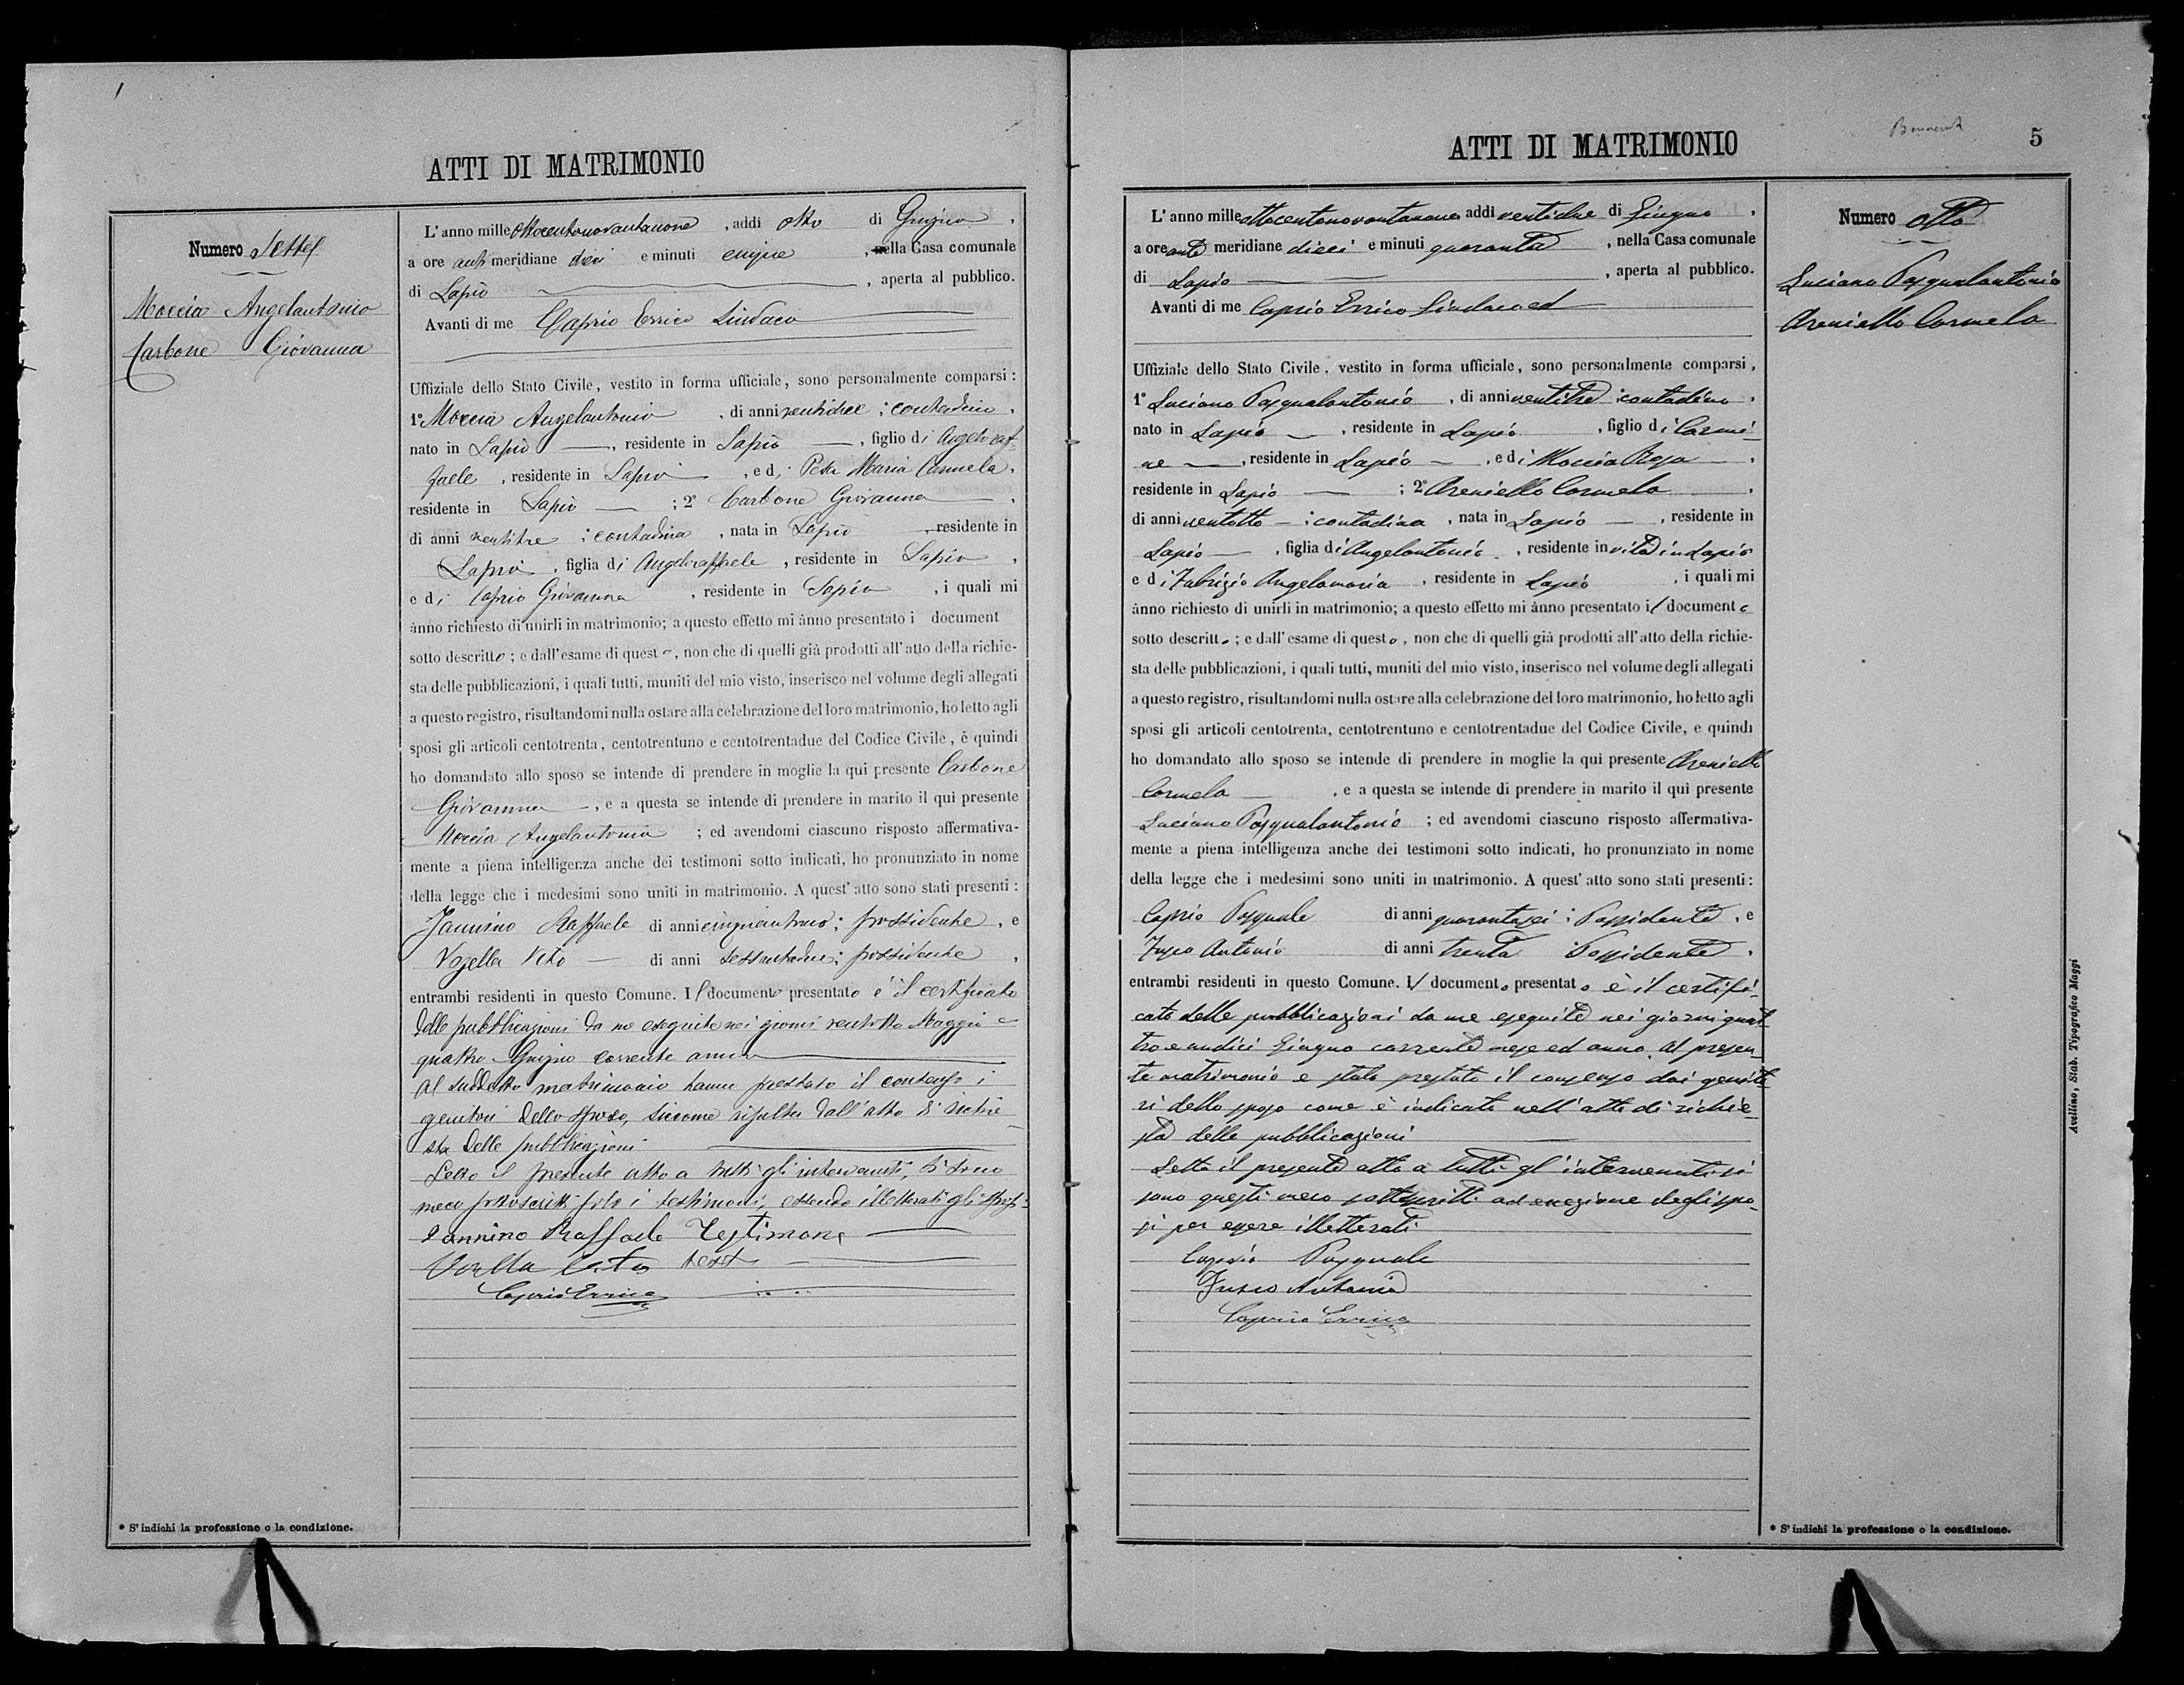 ATTI DI MATRIMONIO
Numero Sette
Moccia Angelantonio
Carbone Giovanna
L'anno mille ottocentonovantanove, addi otto di Giugno,
a ore anti meridiane dieci e minuti cinque, nella Casa comunale
di Lapio, aperta al pubblico.
Avanti di me Caprio Errico Sindaco
Uffiziale dello Stato Civile, vestito in forma ufficiale, sono personalmente comparsi:
1° Moccia Angelantonio, di anni; contadino,
nato in Lapio, residente in Lapio, figlio di Angeloraf-
faele, residente in Lapio, e di Maria Carmela,
residente in Lapio; 2° Carbone Giovanna,
di anni ventitre; contadina, nata in Lapio, residente in
Lapio, figlia di Angeloraffaele, residente in Lapio,
e di Caprio Giovanna, residente in Lapio, i quali mi
ànno richiesto di unirli in matrimonio; a questo effetto mi ànno presentato i document
sotto descritto; e dall'esame di questo, non che di quelli già prodotti all'atto della richie-
sta delle pubblicazioni, i quali tutti, muniti del mio visto, inserisco nel volume degli allegati
a questo registro, risultandomi nulla ostare alla celebrazione del loro matrimonio, ho letto agli
sposi gli articoli centotrenta, centotrentuno e centotrentadue del Codice Civile, e quindi
ho domandato allo sposo se intende di prendere in moglie la qui presente Carbone
Giovanna, e a questa se intende di prendere in marito il qui presente
Moccia Angelantonio; ed avendomi ciascuno risposto affermativa-
mente a piena intelligenza anche dei testimoni sotto indicati, ho pronunziato in nome
della legge che i medesimi sono uniti in matrimonio. A quest'atto sono stati presenti:
Jannino Raffaele di anni; possidente, e
Vozella Vito di anni sessantadue; possidente,
entrambi residenti in questo Comune. Il documento presentato è il certificato
delle pubblicazioni da me eseguite nei giorni ventotto Maggio e
quattro Giugno corrente anno
Al suddetto matrimonio hanno prestato il consenso i
genitori dello sposo, siccome risulta dall'atto di richie-
sta delle pubblicazioni
Letto il presente atto a tutti gli intervenuti, si sono
meco sottoscritti solo i testimoni, essendo illetterati gli sposi.
Iannino Raffaele Testimone
Vozella Vito test
Caprio Errico
ATTI DI MATRIMONIO
5
Numero otto
Luciano Pasqualantonio
Areniello Carmela
L'anno mille ottocentonovantanove addi ventidue di Giugno,
a ore ante meridiane dieci e minuti quaranta, nella Casa comunale
di Lapio, aperta al pubblico.
Avanti di me Caprio Errico Sindaco ed
Uffiziale dello Stato Civile, vestito in forma ufficiale, sono personalmente comparsi,
1° Luciano Pasqualantonio, di anni ventitre; contadino,
nato in Lapio, residente in Lapio, figlio di Carmi-
ne, residente in Lapio, e di Moccia Rosa,
residente in Lapio; 2° Areniello Carmela,
di anni ventotto; contadina, nata in Lapio, residente in
Lapio, figlia di Angelantonio, residente in vita in Lapio
e di Fabrizio Angelamaria, residente in Lapio, i quali mi
ànno richiesto di unirli in matrimonio; a questo effetto mi ànno presentato il documento
sotto descritto; e dall'esame di questo, non che di quelli già prodotti all'atto della richie-
sta delle pubblicazioni, i quali tutti, muniti del mio visto, inserisco nel volume degli allegati
a questo registro, risultandomi nulla ostare alla celebrazione del loro matrimonio, ho letto agli
sposi gli articoli centotrenta, centotrentuno e centotrentadue del Codice Civile, e quindi
ho domandato allo sposo se intende di prendere in moglie la qui presente Areniello
Carmela, e a questa se intende di prendere in marito il qui presente
Luciano Pasqualantonio; ed avendomi ciascuno risposto affermativa-
mente a piena intelligenza anche dei testimoni sotto indicati, ho pronunziato in nome
della legge che i medesimi sono uniti in matrimonio. A quest'atto sono stati presenti:
Caprio Pasquale di anni quarantasei; Possidente, e
Fusco Antonio di anni trenta Possidente,
entrambi residenti in questo Comune. Il documento presentato è il certifi-
cato delle pubblicazioni da me eseguite nei giorni quat-
tro e undici Giugno corrente mese ed anno. Al presen-
te matrimonio e stato prestato il consenso dai genito-
ri dello sposo come è indicato nell'atto di richie-
sta delle pubblicazioni
Letto il presente atto a tutti gl'intervenuti si
sono questi meco sottoscritti ad eccezione degli spo-
si per essere illetterati
Caprio Pasquale
Fusco Antonio
Caprio Errico
* S'indichi la professione o la condizione.
* S'indichi la professione o la condizione.
Avellino, Stab. Tipografico Maggi